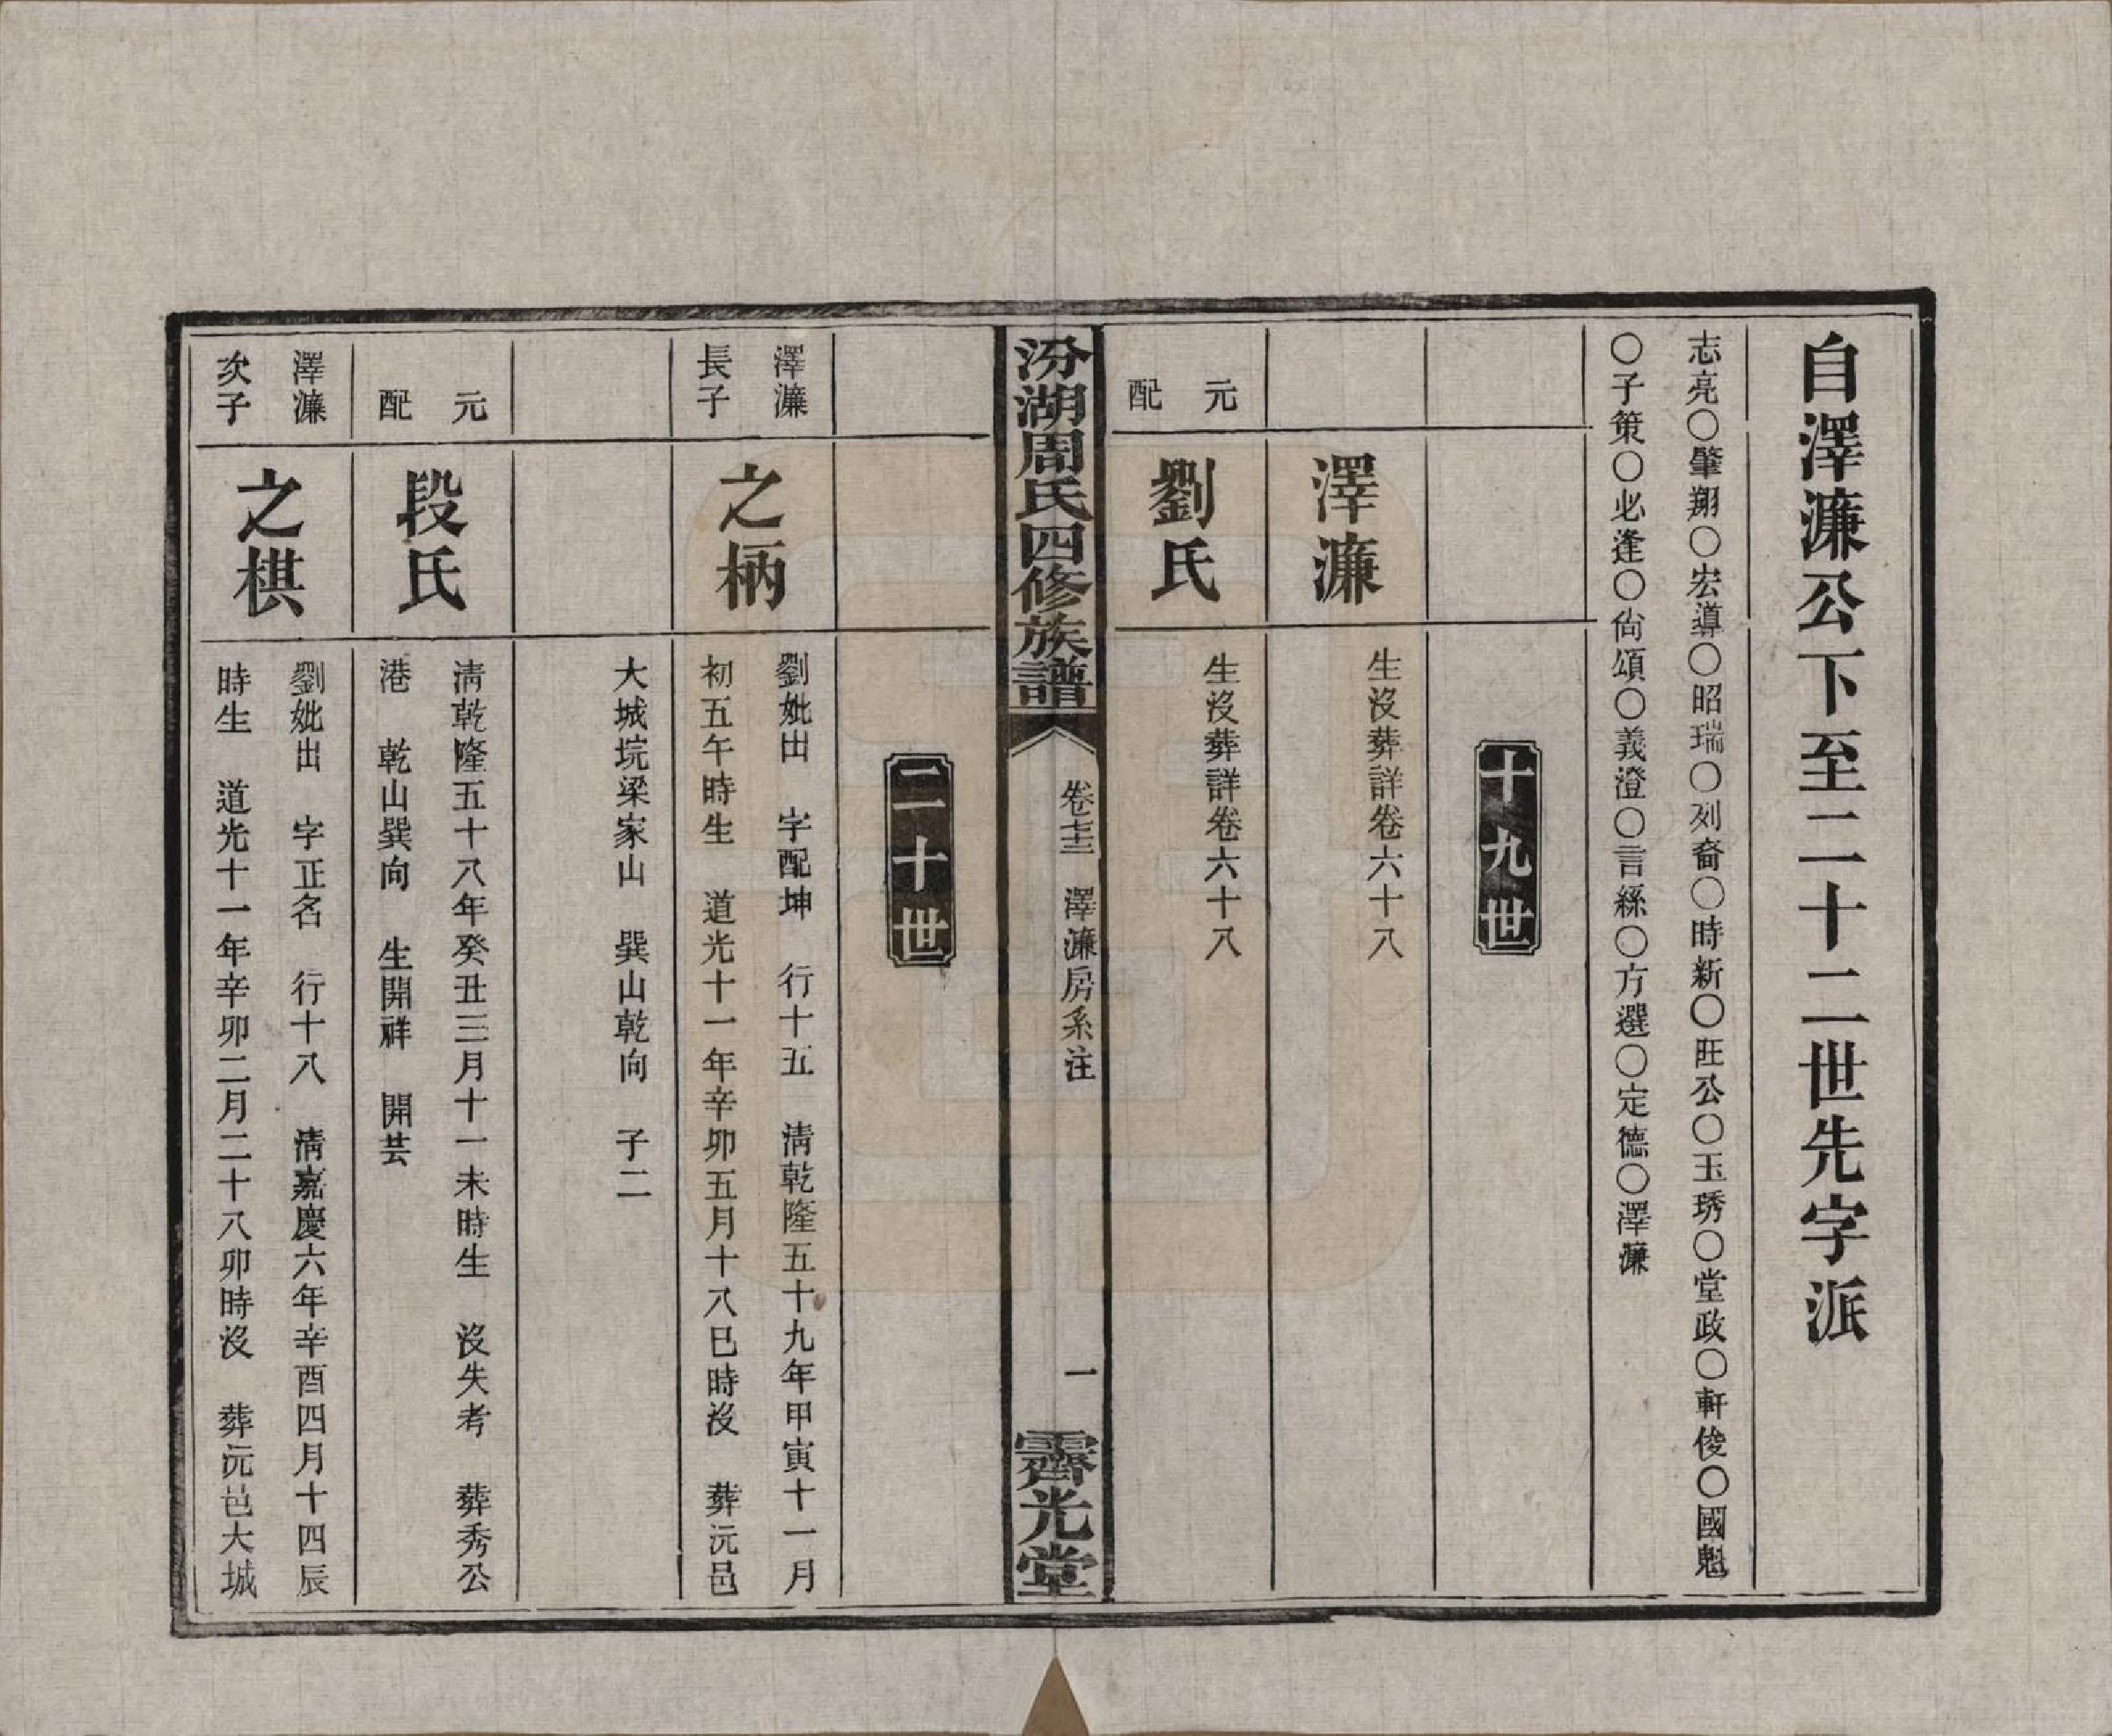 自澤濂公下至二十二世先字派
志亮○肇翔○宏導○昭瑞○列裔○時新○旺公○玉琇○堂政○軒俊○國魁
○子策○必逢○尙頌○義澄○言絲○方選○定德○澤濂
十九世
澤濂
生沒葬詳卷六十八
元
配
劉氏
生沒葬詳卷六十八
汾湖周氏四修族譜
卷
澤濂房系注
一
霽光堂
二十世
澤濂
長子
之柄
劉妣出 字配坤 行十五 淸乾隆五十九年甲寅十一月
初五午時生 道光十一年辛卯五月十八巳時沒 葬沅邑
大城垸梁家山 巽山乾向 子二
元
配
段氏
淸乾隆五十八年癸丑三月十一未時生 沒失考 葬秀公
港 乾山巽向 生開祥 開芸
澤濂
次子
之棋
劉妣出 字正名 行十八 淸嘉慶六年辛酉四月十四辰
時生 道光十一年辛卯二月二十八卯時沒 葬沅邑大城